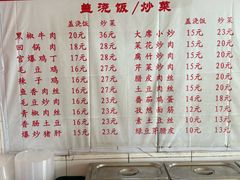 盖浇饭/炒菜
盖浇饭 炒菜 盖浇饭 炒菜
黑椒牛肉 20元 36元 大席小炒 15元 23元
回锅肉 18元 28元 菜花炒肉 15元 23元
宫爆鸡丁 17元 26元 腐竹炒肉 15元 23元
毛豆鸡丁 17元 26元 芹菜炒肉 15元 23元
辣子鸡丁 17元 26元 腊皮肉丝 15元 23元
鱼香肉丝 16元 25元 土豆肉丝 15元 23元
毛豆炒肉 16元 25元 番茄鸡蛋 15元 23元
青椒肉丝 16元 25元 孜然面筋 13元 20元
香肠土豆 16元 25元 素土豆丝 13元 20元
爆炒猪肝 15元 24元 绿豆芽腰皮 13元 20元